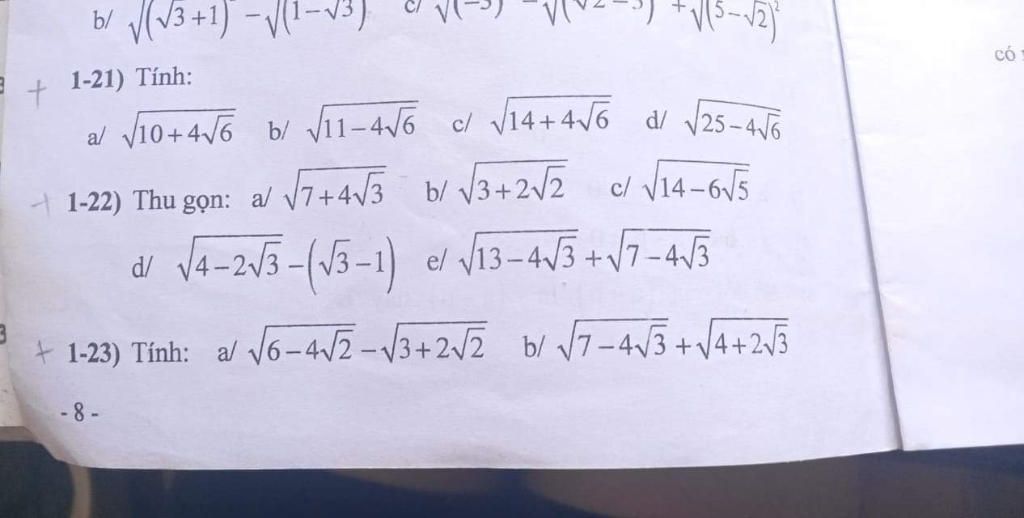 b/ √(√3+1) − √(1−√3) c/ √(−3) − √(√2−3) + √(5−√2)²
có
1-21) Tính:
a/ √(10+4√6) b/ √(11−4√6) c/ √(14+4√6) d/ √(25−4√6)
1-22) Thu gọn: a/ √(7+4√3) b/ √(3+2√2) c/ √(14−6√5)
d/ √(4−2√3) −(√3−1) e/ √(13−4√3) + √(7−4√3)
1-23) Tính: a/ √(6−4√2) − √(3+2√2) b/ √(7−4√3) + √(4+2√3)
- 8 -